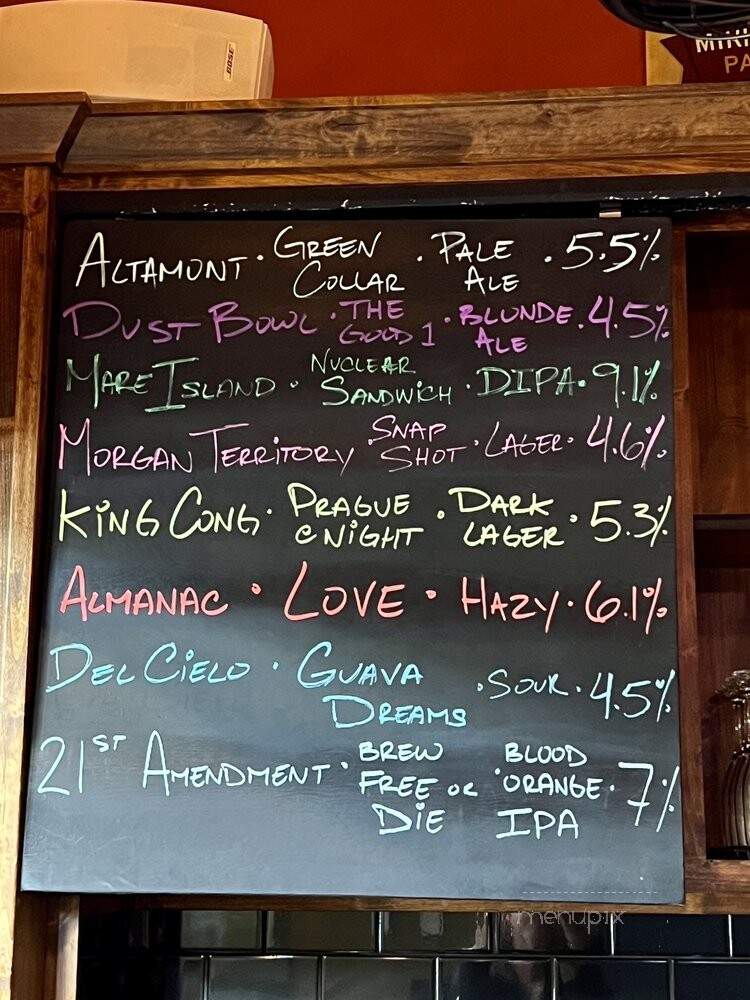 BOSE
PA
ALTAMONT · GREEN COLLAR · PALE ALE · 5.5%
DUST BOWL · THE GOLD 1 · BLONDE ALE · 4.5%
MARE ISLAND · NUCLEAR SANDWICH · DIPA · 9.1%
MORGAN TERRITORY · SNAP SHOT · LAGER · 4.6%
KING CONG · PRAGUE @ NIGHT · DARK LAGER · 5.3%
ALMANAC · LOVE · HAZY · 6.1%
DEL CIELO · GUAVA DREAMS · SOUR · 4.5%
21ST AMENDMENT · BREW FREE OR DIE · BLOOD ORANGE IPA · 7%
menupix